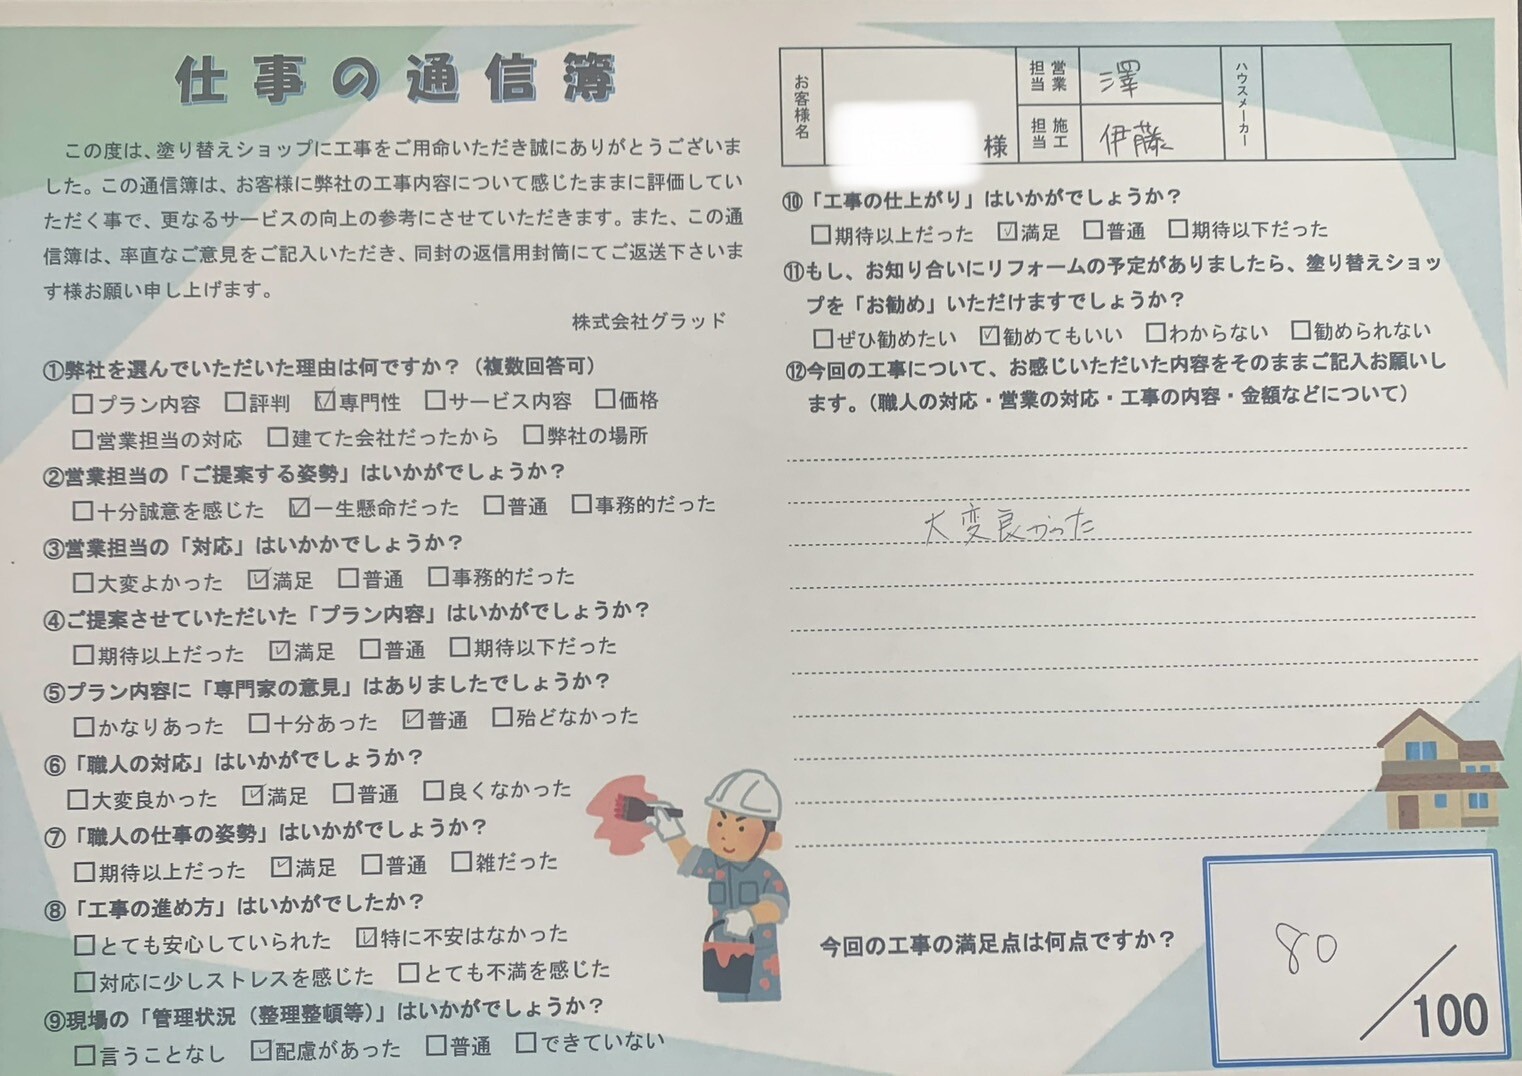 仕事の通信簿
この度は、塗り替えショップに工事をご用命いただき誠にありがとうございま
した。この通信簿は、お客様に弊社の工事内容について感じたままに評価してい
ただく事で、更なるサービスの向上の参考にさせていただきます。また、この通
信簿は、率直なご意見をご記入いただき、同封の返信用封筒にてご返送下さいま
す様お願い申し上げます。
株式会社グラッド
①弊社を選んでいただいた理由は何ですか？（複数回答可）
□プラン内容 □評判 ☑専門性 □サービス内容 □価格
□営業担当の対応 □建てた会社だったから □弊社の場所
②営業担当の「ご提案する姿勢」はいかがでしょうか？
□十分誠意を感じた ☑一生懸命だった □普通 □事務的だった
③営業担当の「対応」はいかかでしょうか？
□大変よかった ☑満足 □普通 □事務的だった
④ご提案させていただいた「プラン内容」はいかがでしょうか？
□期待以上だった ☑満足 □普通 □期待以下だった
⑤プラン内容に「専門家の意見」はありましたでしょうか？
□かなりあった □十分あった ☑普通 □殆どなかった
⑥「職人の対応」はいかがでしょうか？
□大変良かった ☑満足 □普通 □良くなかった
⑦「職人の仕事の姿勢」はいかがでしょうか？
□期待以上だった ☑満足 □普通 □雑だった
⑧「工事の進め方」はいかがでしたか？
□とても安心していられた ☑特に不安はなかった
□対応に少しストレスを感じた □とても不満を感じた
⑨現場の「管理状況（整理整頓等）」はいかがでしょうか？
□言うことなし ☑配慮があった □普通 □できていない
お客様名 様 営業担当 澤 ハウスメーカー
施工担当 伊藤
⑩「工事の仕上がり」はいかがでしょうか？
□期待以上だった ☑満足 □普通 □期待以下だった
⑪もし、お知り合いにリフォームの予定がありましたら、塗り替えショッ
プを「お勧め」いただけますでしょうか？
□ぜひ勧めたい ☑勧めてもいい □わからない □勧められない
⑫今回の工事について、お感じいただいた内容をそのままご記入お願いし
ます。（職人の対応・営業の対応・工事の内容・金額などについて）
大変良かった
今回の工事の満足点は何点ですか？
80／100